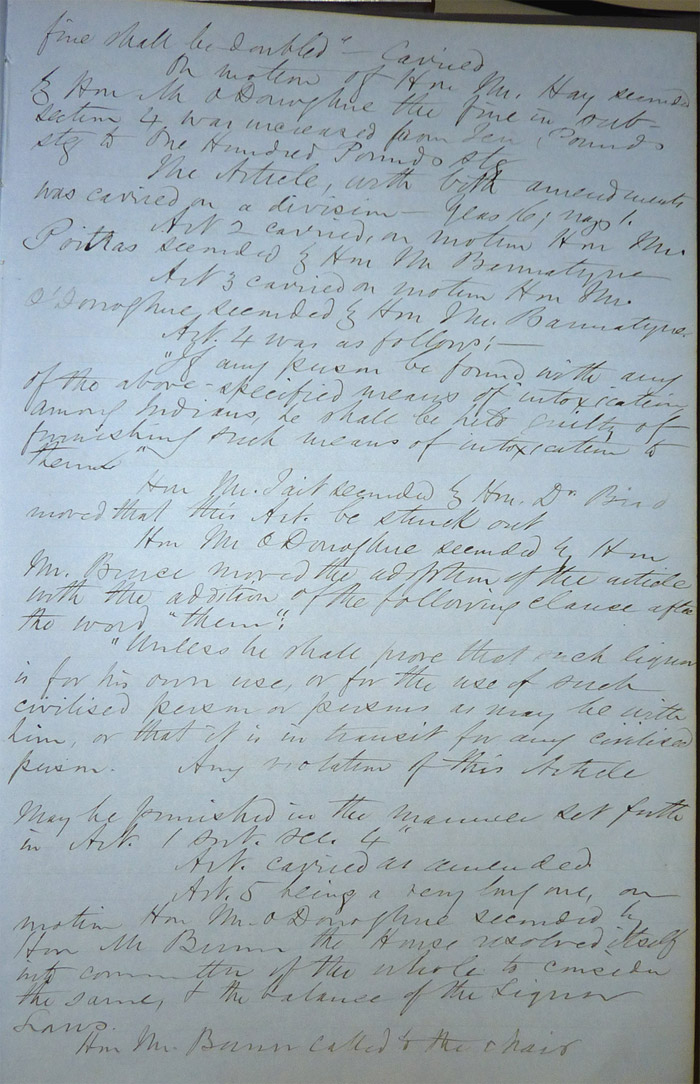 fine shall be doubled" — Carried
On motion of Hon Mr. Hay seconded
by Hon Mr O'Donoghue the fine in sub-
section 4 was increased from Ten Pounds
stg to One Hundred Pounds stg
The Article, with both amendments
was carried on a division — Yeas 16; nays 1.
Art 2 carried, on motion Hon Mr.
Poitras seconded by Hon Mr Bannatyne
Art 3 carried on motion Hon Mr.
O'Donoghue, seconded by Hon Mr. Bannatyne.
Art. 4 was as follows: —
"If any person be found with any
of the above-specified means of intoxication
among Indians, he shall be held guilty of
furnishing such means of intoxication to
them"
Hon Mr. Tait seconded by Hon. Dr Bird
moved that this Art. be struck out
Hon Mr O'Donoghue seconded by Hon
Mr. Bruce moved the adoption of the article
with the addition of the following clause after
the word "them":
"Unless he shall prove that such liquor
is for his own use, or for the use of such
civilised person or persons as may be with
him, or that it is in transit for any civilised
person. Any violation of this Article
may be punished in the manner set forth
in Art. 1 sec. 4"
Art. carried as amended
Art. 5 being a very long one, on
motion Hon Mr. O'Donoghue seconded by
Hon Mr Bunn the House resolved itself
into committee of the whole to consider
the same, & the balance of the Liquor
Laws.
Hon Mr. Bunn called to the chair